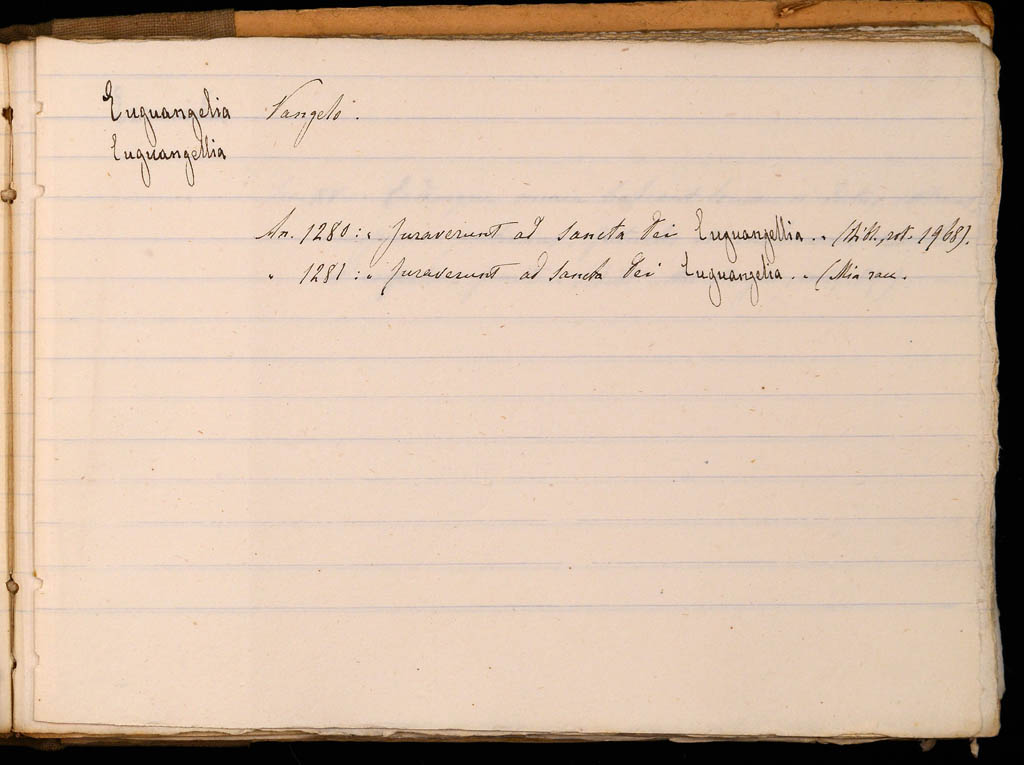 Euguangelia Vangelo.
Euguangellia
An. 1280: „ Juraverunt ad sancta Dei Euguangellia. „ (Bibl., rot. 1968).
„ 1281: „ Juraverunt ad sancta Dei Euguangelia. „ (Mia racc.